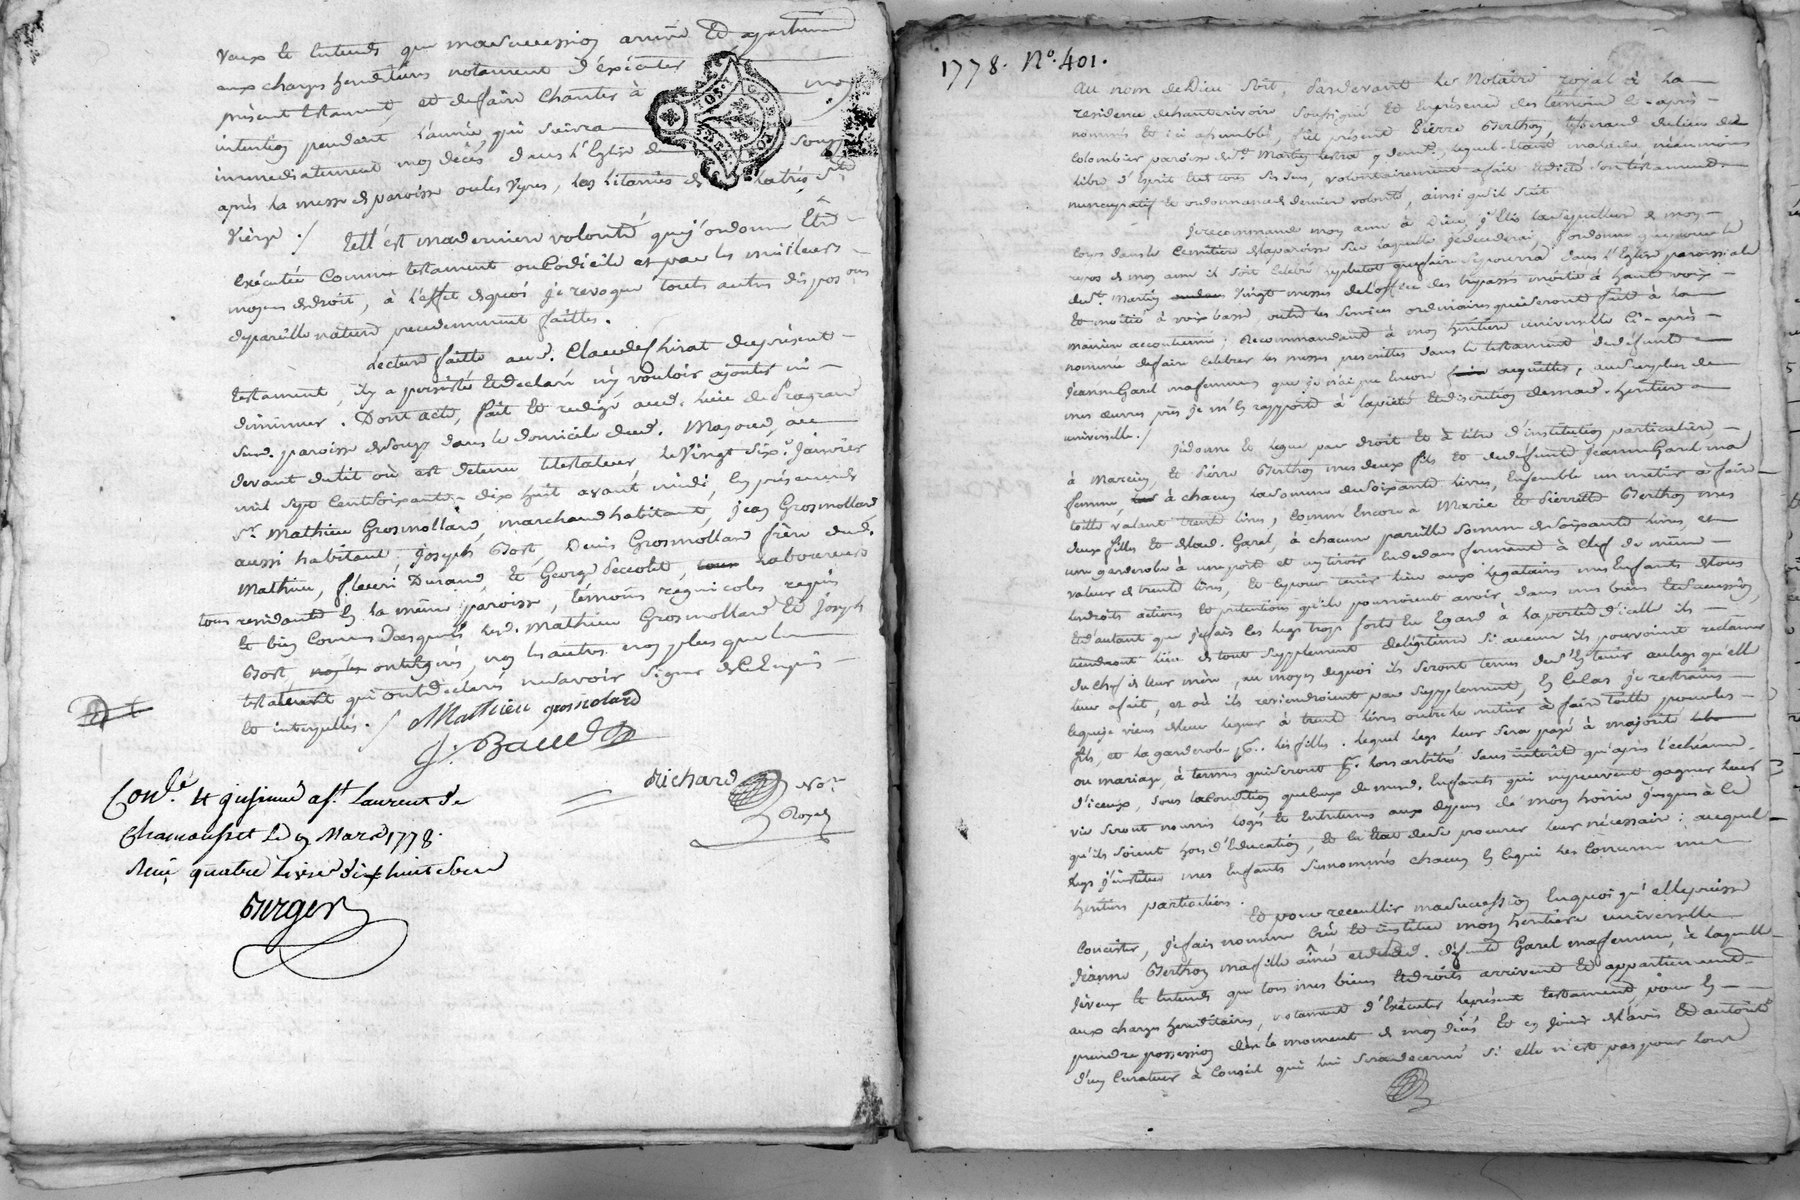 veux et entends que ma succession arrive et apartienne
aux charges hereditaires notament d'exécuter
présent testament, et de faire chanter à mon
intention pendant l'année qui suivra
immediatement mon décès dans l'Eglise de Souzy
après la messe de paroisse ou les vepres, les litanies de la très Ste
Vierge ./ telle est ma derniere volonté que j'ordonne être
exécutée comme testament ou codicile et par les meilleurs
moyens de droit, à l'effet de quoi je revoque toutes autres disposons
de pareille nature precedemment faittes.
Lecture faitte aud. Claude Chirat du présent
testament, il y a persisté et declaré n'y vouloir ajouter ni
diminuer. Dont acte, fait et redigé aud. lieu de
sud. paroisse de Souzy dans le domicile dud. au
devant du lit où est detenu le testateur, le vingt six. Janvier
mil sept cent soixante-dix huit avant midi, en présence de
Sr. Mathieu Grosmollard, marchand habitant, Jean Grosmollard
aussi habitant, Joseph Bost, Denis Grosmollard frère dud.
Mathieu, fleuri Durand et George laboureurs
tous residants en la même paroisse, témoins regnicoles requis
et bien connus desquels lesd. Mathieu Grosmollard et Joseph
Bost, ont signé, non les autres non plus que le
testateur qui ont declaré ne savoir signer de ce enquis
et interpellés. / Mathieu grosmolard
J: Baud
Richard Nore
Royal
Conlé et insinué a St. Laurent de
Chamousset le 9 Mars 1778.
Reçu quatre Livres dix huit sous
Burger
1778. No. 401.
Au nom de Dieu soit, Pardevant le Notaire royal à la
residence de hauterivoire soussigné et en présence des témoins ci-après
nommés et ici assemblés, fut présent Pierre Berthon, tisserand du lieu de
Colombier paroisse de St. Martin lestra y demt., lequel étant malade néanmoins
libre d'esprit et de tous ses sens, volontairement a fait et dicté son testament
nuncupatif et ordonnance de derniere volonté, ainsi qu'il suit
Je recommande mon ame à Dieu, j'élis la sepulture de mon
corps dans le cimetiere de la paroisse sur laquelle je decederai, j'ordonne que pour le
repos de mon ame il soit celebré le plutot que faire se pourra dans l'Eglise paroissiale
de St. Martin vingt messes de l'office des trepassés moitié à haute voix
et moitié à voix basse, outre les services ordinaires qui seront faits à la
maniere accoutumée; Recommandant à mon héritiere universelle ci-après
nommée de faire celebrer les messes prescrittes dans le testament de defunte
Jeanne Garel ma femme que je n'ai pu encore acquitter, au surplus de
mes œuvres pies je m'en rapporte à la pieté et discretion de mad. heritiere
universelle./
Je donne et legue par droit et à titre d'institution particuliere
à Marcein, et Pierre Berthon mes deux fils et de defunte Jeanne Garel ma
femme, à chacun la somme de soixante livres, ensemble un métier à faire
toille valant trente livres, comm'encore à Marie, et Pierrette Berthon mes
deux filles et de lad. Garel, à chacune pareille somme de soixante livres et
une garderobe à une porte et un tiroir en dedans fermant à clef de même
valeur de trente livres, et ce pour tenir lieu aux legataires mes enfants de tous
les droits actions et pretentions qu'ils pourroient avoir dans mes biens et succession,
et d'autant que je fais ces legs trop forts eu egard à la portée d'icelle ils
tiendront lieu de tout supplement de légitime si aucun ils pouvoient reclamer
du chef de leur mère, au moyen de quoi ils seront tenus de s'en tenir au legs qu'elle
leur a fait, et où ils reviendroient par supplement, en ce cas je restrains
le que je viens de leur leguer à trente livres outre le métier à faire toille pour les
fils, et la garderobe pr. les filles. lequel legs leur sera payé à majorité
ou mariage, à termes qui seront pr. lors arbitrés sans intérêt qu'après l'échéance
d'iceux, sous la condition que ceux de mesd. Enfants qui ne peuvent gagner leur
vie seront nourris logés et entretenus aux depens de mon hoirie jusques à ce
qu'ils soient hors d'education, et en état de se procurer leur nécessaire: auquel
legs j'institue mes Enfants susnommés chacun en ce qui les concerne mes
heritiers particuliers.
Et pour recueillir ma succession en quoi qu'elle puisse
consister, je fais nomme crée et institue mon héritiere universelle
Jeanne Berthon ma fille ainée et de lad. défunte Garel ma femme, à laquelle
je veux et entends que tous mes biens et droits arrivent et appartiennent
aux charges hereditaires, notament d'Exécuter le présent testament, pour en
prendre possession dès le moment de mon décès et en jouir de l'avis et autorité
d'un curateur à conseil qui lui sera decerné si elle n'est pas pour lors